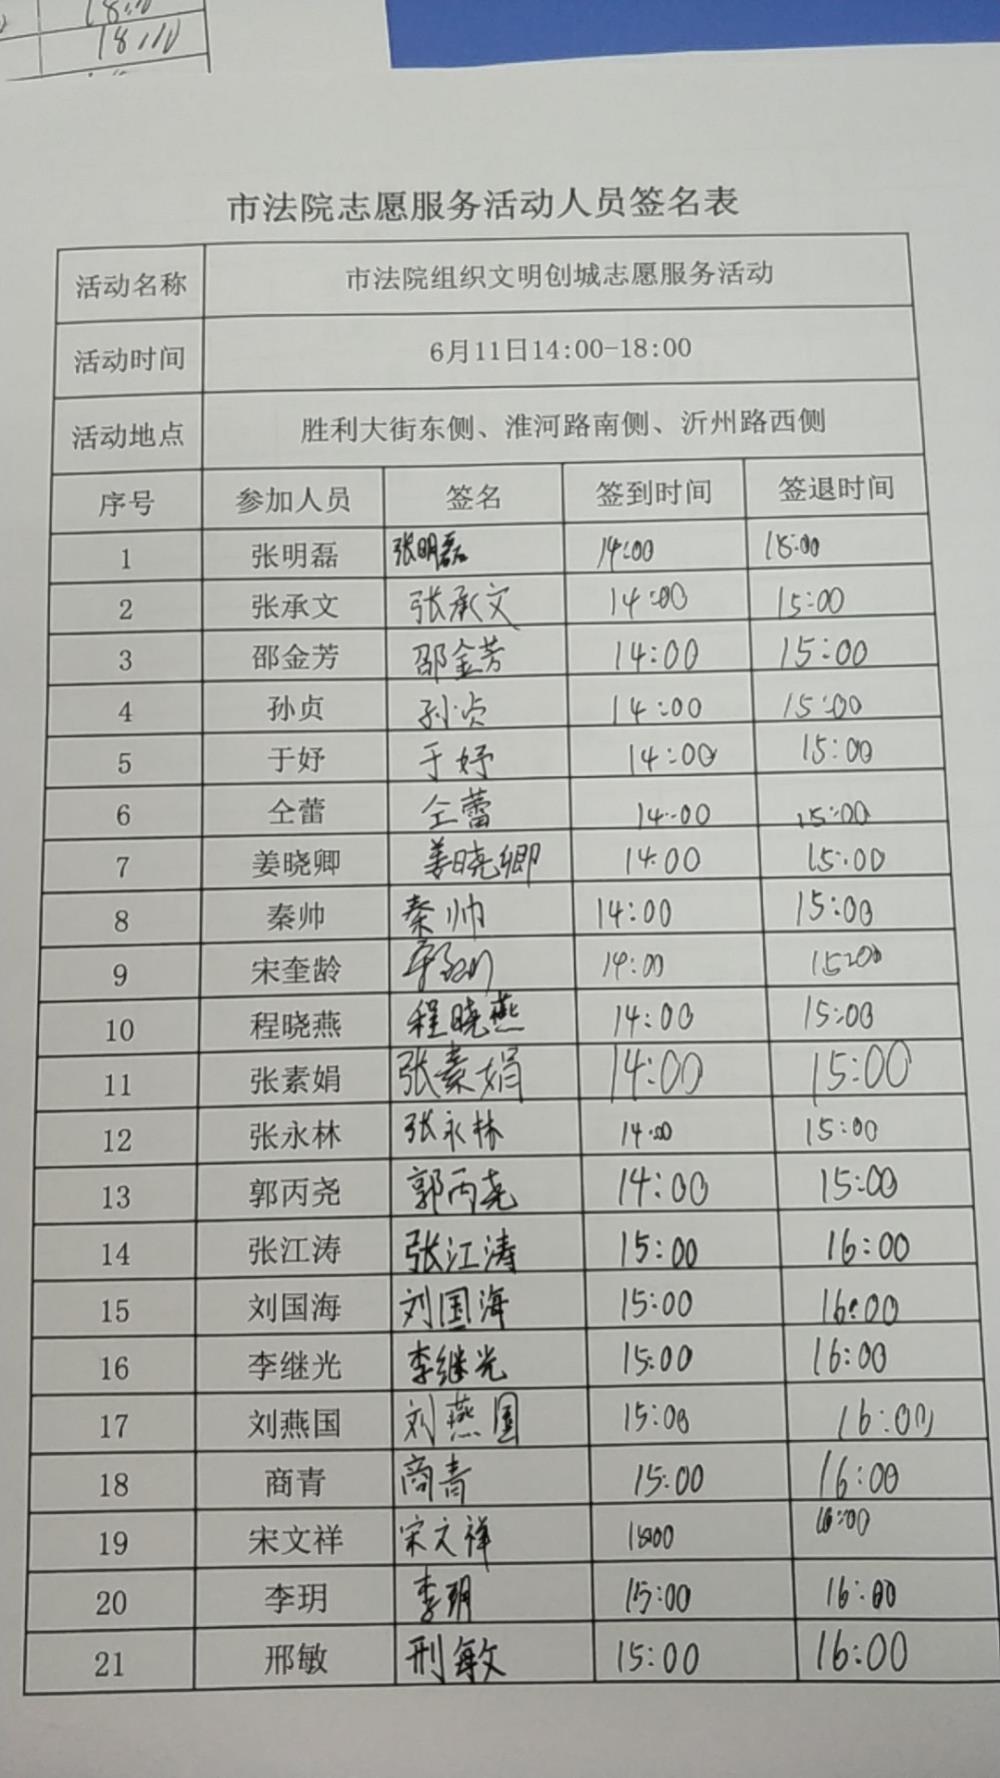 18:10
市法院志愿服务活动人员签名表
活动名称 市法院组织文明创城志愿服务活动
活动时间 6月11日14:00-18:00
活动地点 胜利大街东侧、淮河路南侧、沂州路西侧
序号 参加人员 签名 签到时间 签退时间
1 张明磊 张明磊 14:00 15:00
2 张承文 张承文 14:00 15:00
3 邵金芳 邵金芳 14:00 15:00
4 孙贞 孙贞 14:00 15:00
5 于妤 于妤 14:00 15:00
6 仝蕾 仝蕾 14:00 15:00
7 姜晓卿 姜晓卿 14:00 15:00
8 秦帅 秦帅 14:00 15:00
9 宋奎龄 14:00 15:00
10 程晓燕 程晓燕 14:00 15:00
11 张素娟 张素娟 14:00 15:00
12 张永林 张永林 14:00 15:00
13 郭丙尧 郭丙尧 14:00 15:00
14 张江涛 张江涛 15:00 16:00
15 刘国海 刘国海 15:00 16:00
16 李继光 李继光 15:00 16:00
17 刘燕国 刘燕国 15:00 16:00
18 商青 商青 15:00 16:00
19 宋文祥 宋文祥 15:00 16:00
20 李玥 李玥 15:00 16:00
21 邢敏 刑敏 15:00 16:00